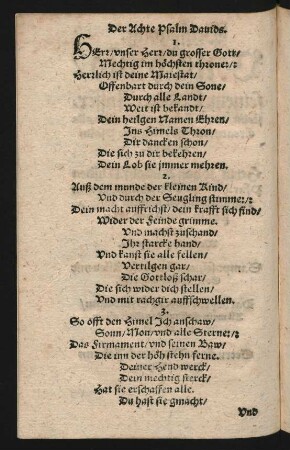 Der Achte Psalm Dauids.
1.
HErr/vnser Herr/du grosser Gott/
Mechtig im höchsten throne:/:
Herrlich ist deine Maiestat/
Offenbart durch dein Sone/
Durch alle Landt/
Weit ist bekandt/
Dein heilgen Namen Ehren/
Ins Himels Thron/
Dir dancken schon/
Die sich zu dir bekehren/
Dein Lob sie jmmer mehren.
2.
Auß dem munde der kleinen Kind/
Vnd durch der Seugling stumme:/:
Dein macht auffrichst/dein krafft sich find/
Wider der Feinde grimme.
Vnd machst zuschand/
Ihr starcke hand/
Vnd kanst sie alle fellen/
Vertilgen gar/
Die Gottloß schar/
Die sich wider dich stellen/
Vnd mit rachgir auffschwellen.
3.
So offt den Himel Ich anschaw/
Sonn/Mon/vnd alle Sterne:/:
Das Firmament/vnd seinen Baw/
Die inn der höh stehn ferne.
Deiner Hend werck/
Dein mechtig sterck/
Hat sie erschaffen alle.
Du hast sie gmacht/
Vnd